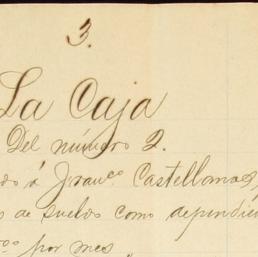 3.
La Caja
Del número 2.
do á Franco. Castellanos,
s de sueldos como dependie
por mes